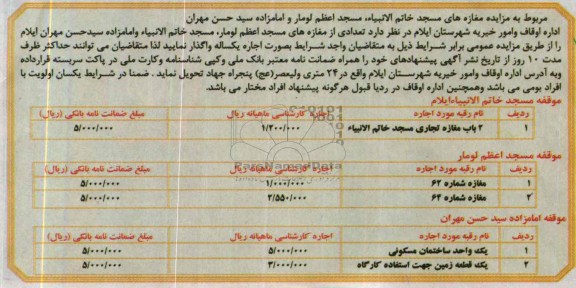 مربوط به مزایده مغازه های مسجد خاتم الانبیاء، مسجد اعظم لومار و امامزاده سید حسن مهران
اداره اوقاف وامور خیریه شهرستان ایلام در نظر دارد تعدادی از مغازه های مسجد اعظم لومار، مسجد خاتم الانبیاء وامامزاده سیدحسن مهران ایلام
را از طریق مزایده عمومی برابر شرایط ذیل به متقاضیان واجد شرایط بصورت اجاره یکساله واگذار نمایید لذا متقاضیان می توانند حداکثر ظرف
مدت ۱۰ روز از تاریخ نشر آگهی پیشنهادهای خود را همراه ضمانت نامه معتبر بانک ملی وکپی شناسنامه وکارت ملی در پاکت سربسته قرارداده
وبه آدرس اداره اوقاف وامور خیریه شهرستان ایلام واقع در۲۴ متری ولیعصر(عج) پنجراه جهاد تحویل نماید . ضمنا در شرایط یکسان اولویت با
افراد بومی می باشد وهمچنین اداره اوقاف در ردیا قبول هرگونه پیشنهاد افراد مختار می باشد.
موقفه مسجد خاتم الانبیاءایلام
ردیف نام رقبه مورد اجاره اجاره کارشناسی ماهیانه ریال مبلغ ضمانت نامه بانکی (ریال)
۱ ۲ باب مغازه تجاری مسجد خاتم الانبیاء ۱/۲۰۰/۰۰۰ ۵/۰۰۰/۰۰۰
موقفه مسجد اعظم لومار
ردیف نام رقبه مورد اجاره اجاره کارشناسی ماهیانه ریال مبلغ ضمانت نامه بانکی (ریال)
۱ مغازه شماره ۶۲ ۱/۰۰۰/۰۰۰ ۵/۰۰۰/۰۰۰
۲ مغازه شماره ۶۴ ۲/۵۵۰/۰۰۰ ۵/۰۰۰/۰۰۰
موقفه امامزاده سید حسن مهران
ردیف نام رقبه مورد اجاره اجاره کارشناسی ماهیانه ریال مبلغ ضمانت نامه بانکی (ریال)
۱ یک واحد ساختمان مسکونی ۵/۰۰۰/۰۰۰ ۵/۰۰۰/۰۰۰
۲ یک قطعه زمین جهت استفاده کارگاه ۳/۰۰۰/۰۰۰ ۵/۰۰۰/۰۰۰